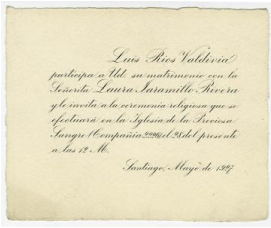 Luis Ríos Valdivia
participa a Ud. su matrimonio con la
Señorita Laura Jaramillo Rivera
y le invita a la ceremonia religiosa que se
efectuará en la Iglesia de la Preciosa
Sangre (Compañía el 28 del presente
a las 12 M.
Santiago, Mayo de 1927